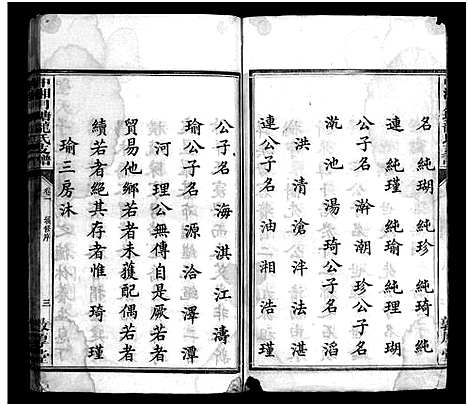 名純瑚 純珍 純琦 純
連 純瑾 純瑜 純理 名瑚
公子名 瀚 潮 珍公子名
池 湯 琦公子名 滔
洪 清 滄 泮 法 湛
連公子名 油 湘 浩 瑾
公子名 海 淇 江 濤
瑜公子名 源 洽 澤 潭
河 理公無傳自是厥若者
貿易他鄉若者未獲配偶若者
續若者絕其存者惟 琦 瑾
瑜三房沐
中湘月塘 氏支譜
卷一
續修序
三
堂